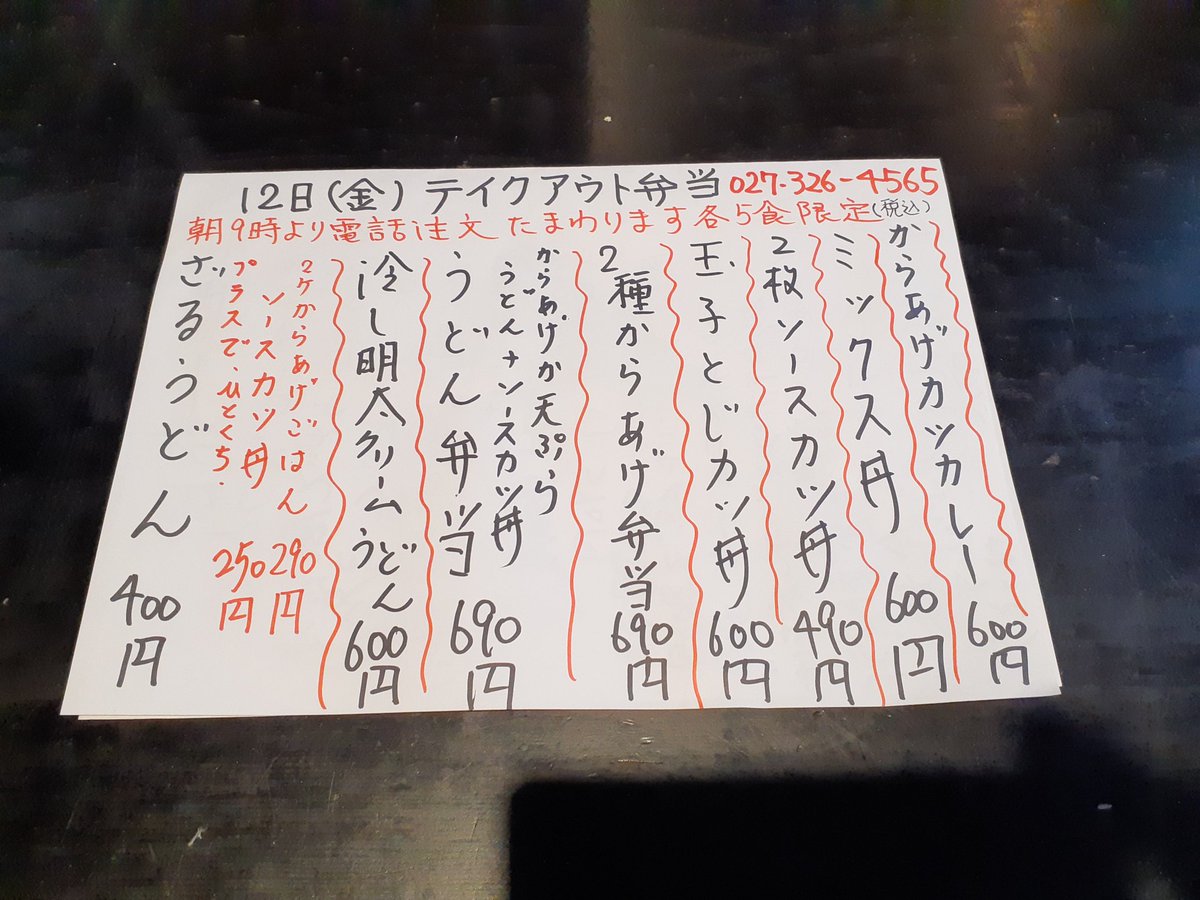 12日(金) テイクアウト弁当 027-326-4565
朝9時より電話注文たまわります各5食限定(税込)
からあげカツカレー 600円
ミックス丼 600円
2枚ソースカツ丼 490円
玉子とじカツ丼 600円
2種からあげ弁当 690円
からあげか天ぷら
うどん+ソースカツ丼
うどん弁当 690円
冷し明太クリームうどん 600円
2ケからあげごはん 290円
ソースカツ丼 250円
プラスで、ひとくち.
ざるうどん 400円